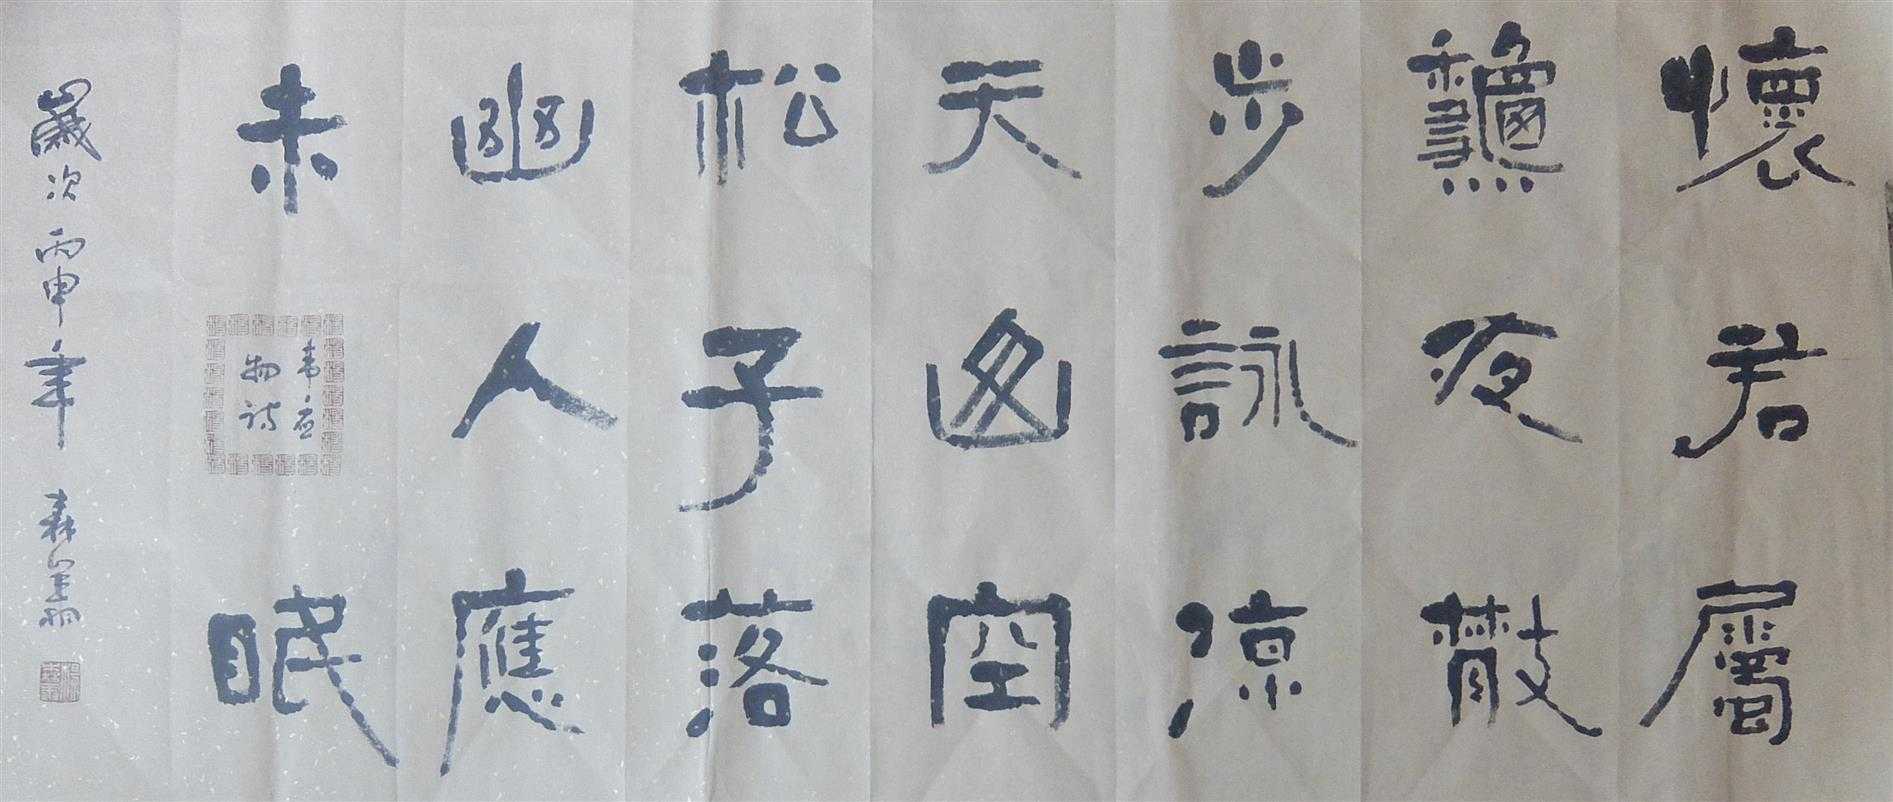 懷君屬
龝夜散
步詠涼
天山空
松子落
幽人應
未眠
韦应
物诗
歲次丙申年